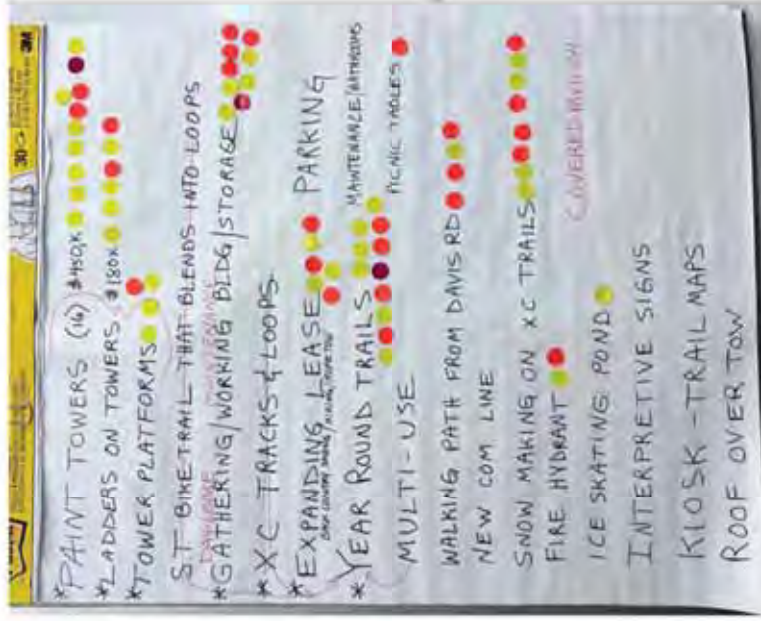 30
3M
*PAINT TOWERS (16) $450K
*LADDERS ON TOWERS $180K
*TOWER PLATFORMS
S.T BIKE TRAIL THAT BLENDS INTO LOOPS
MAINTENANCE
*GATHERING/WORKING BLDG/STORAGE
*XC TRACKS & LOOPS
*EXPANDING LEASE PARKING
*YEAR ROUND TRAILS MAINTENANCE/BATHROOMS
MULTI-USE PICNIC TABLES
WALKING PATH FROM DAVIS RD
NEW COM LINE
SNOW MAKING ON XC TRAILS
FIRE HYDRANT
COVERED PAVILION
ICE SKATING POND
INTERPRETIVE SIGNS
KIOSK - TRAIL MAPS
ROOF OVER TOW